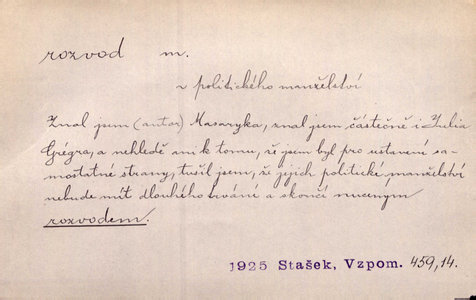 rozvod m.
r politického manželství
Znal jsem (autor) Masaryka, znal jsem částečně i Julia
Grégra, a nehledě ani k tomu, že jsem byl pro ustavení sa-
mostatné strany, tušil jsem, že jejich politické manželství
nebude mít dlouhého trvání a skončí nuceným
rozvodem.
1925 Stašek, Vzpom. 459,14.